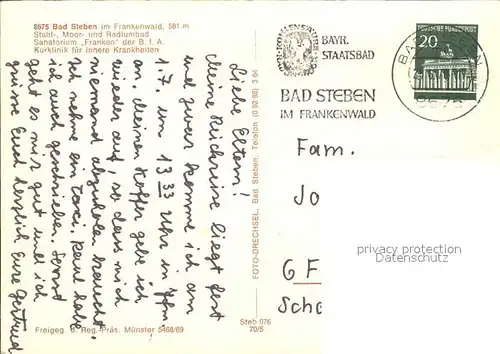 8675 Bad Steben im Frankenwald, 581 m
Stahl-, Moor- und Radiumbad
Sanatorium „Franken" der B. f. A.
Kurklinik für innere Krankheiten
Liebe Eltern!
Meine Rückreise liegt fest
und zwar komme ich am
1.7. um 13 33 Uhr in
an. Meinen Koffer gebe ich
wieder auf, so dass mich
niemand abzuholen braucht.
Ich nehme ein Taxi.
ich auch geschrieben. Sonst
geht es mir gut und ich
grüsse Euch herzlich Eure Gertrud
FOTO-DRECHSEL, Bad Steben, Telefon (0 92 88) 3 64
Freigeg. d. Reg.-Präs. Münster 5468/69
Steb 076
70/5
KOHLENSÄURE
BAYR.
STAATSBAD
BAD STEBEN
IM FRANKENWALD
DEUTSCHE BUNDESPOST
20
8675
Fam.
Jo
GF
Sch
privacy protection
Datenschutz